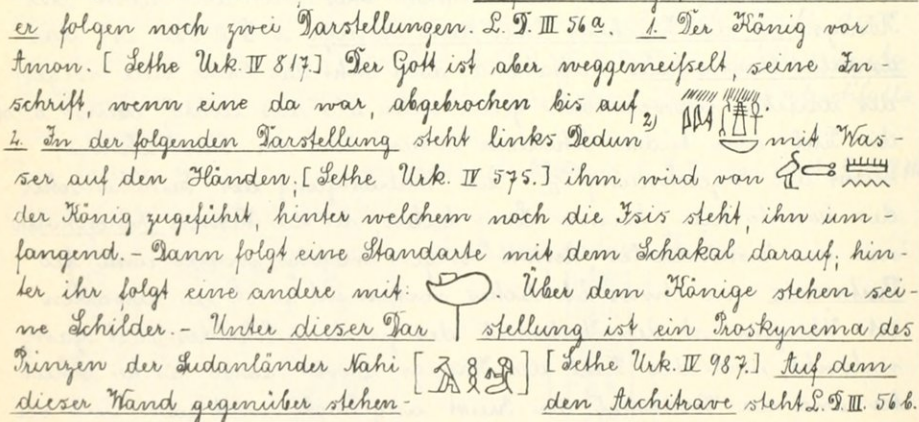 er folgen noch zwei Darstellungen. L. D. III 56a. 1. Der König vor
Amon. [Sethe Urk. IV 817.] Der Gott ist aber weggemeißelt, seine In-
schrift, wenn eine da war, abgebrochen bis auf
2. In der folgenden Darstellung steht links Dedun 2) mit Was-
ser auf den Händen; [Sethe Urk. IV 575.] ihm wird von
der König zugeführt, hinter welchem noch die Isis steht, ihn um-
fangend. - Dann folgt eine Standarte mit dem Schakal darauf; hin-
ter ihr folgt eine andere mit: . Über dem Könige stehen sei-
ne Schilder. - Unter dieser Dar stellung ist ein Proskynema des
Prinzen der Sudanländer Nahi [ ] [Sethe Urk. IV 987.] Auf dem
dieser Wand gegenüber stehen- den Architrave steht L. D. III. 56b.